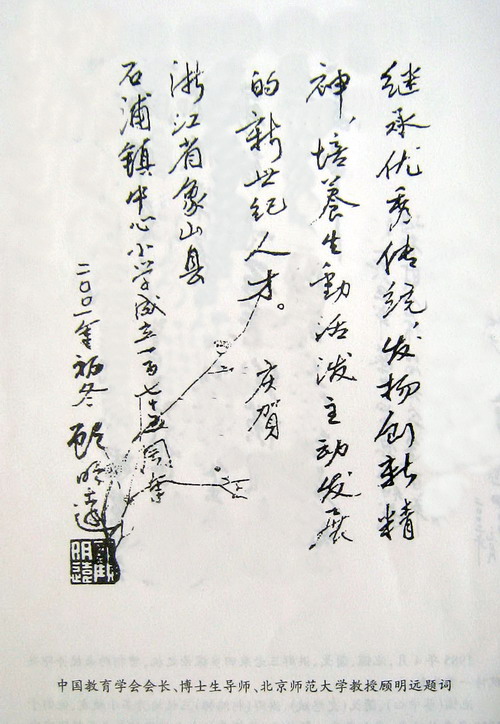 继承优秀传统，发扬创新精
神，培养生動活泼主动发展
的新世纪人才。 庆贺
浙江省象山县
石浦镇中心小学成立一百七十五周年
二〇〇一年初冬 顾明远
中国教育学会会长、博士生导师、北京师范大学教授顾明远题词